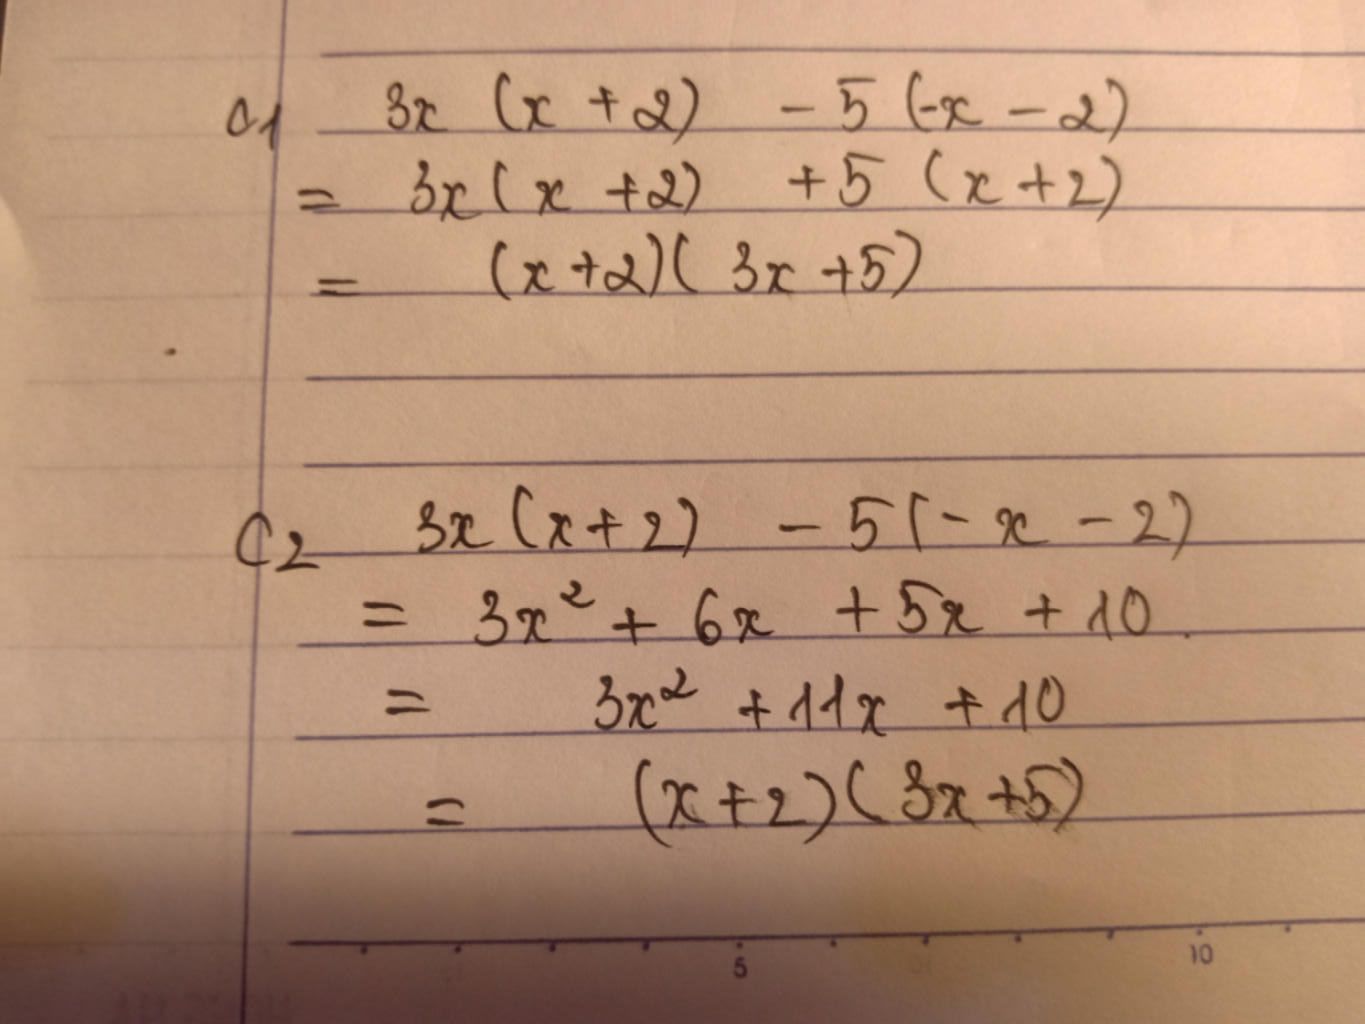 C1 3x (x + 2) - 5 (-x - 2)
= 3x (x + 2) + 5 (x + 2)
= (x + 2)(3x + 5)
C2 3x (x + 2) - 5 (- x - 2)
= 3x² + 6x + 5x + 10.
= 3x² + 11x + 10
= (x + 2)(3x + 5)
5 10